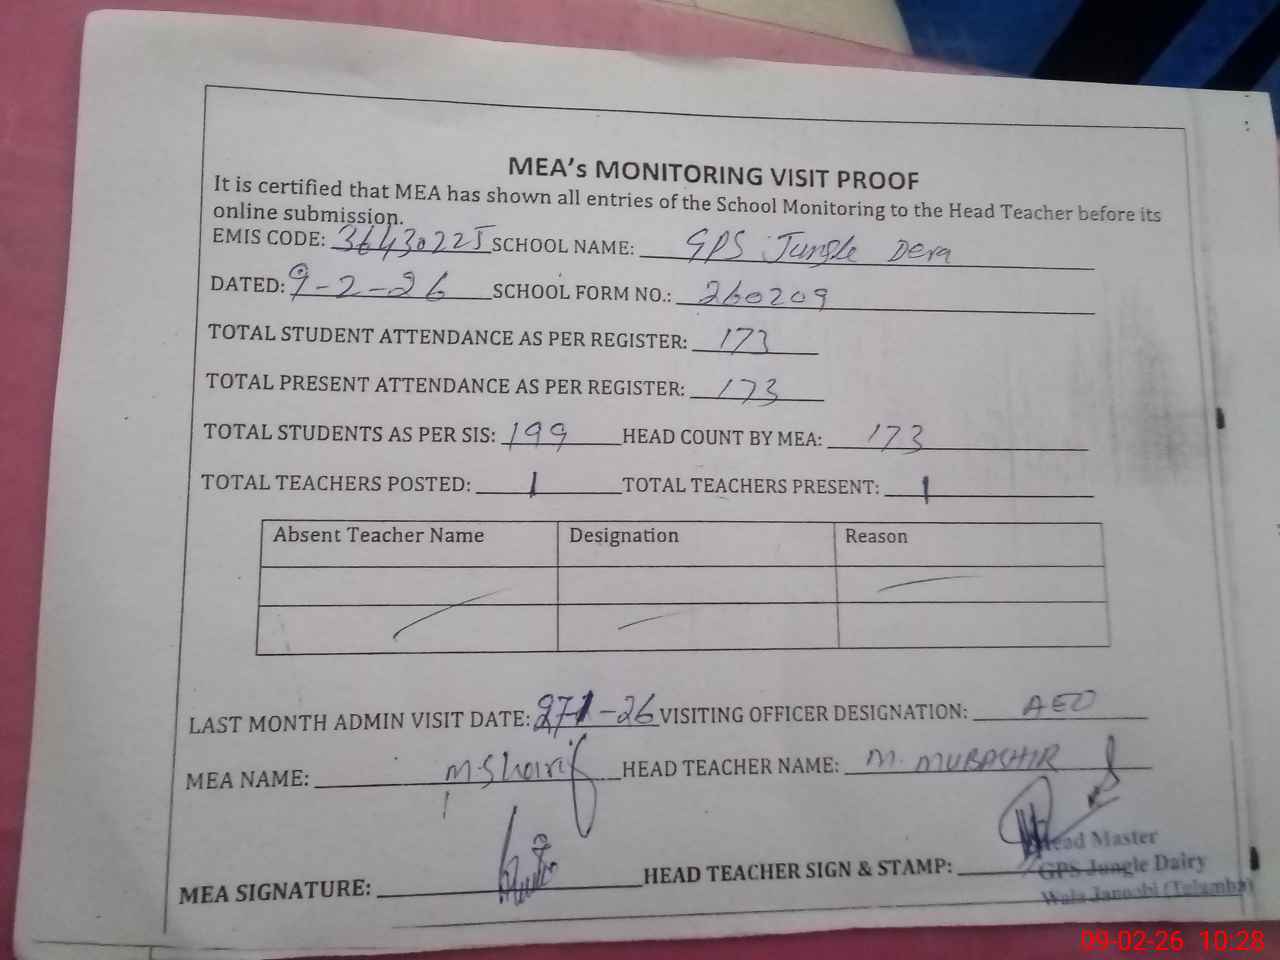 MEA's MONITORING VISIT PROOF
It is certified that MEA has shown all entries of the School Monitoring to the Head Teacher before its
online submission.
EMIS CODE: 36430225 SCHOOL NAME: GPS Jungle Dera
DATED: 9-2-26 SCHOOL FORM NO.: 260209
TOTAL STUDENT ATTENDANCE AS PER REGISTER: 173
TOTAL PRESENT ATTENDANCE AS PER REGISTER: 173
TOTAL STUDENTS AS PER SIS: 199 HEAD COUNT BY MEA: 173
TOTAL TEACHERS POSTED: 1 TOTAL TEACHERS PRESENT: 1
Absent Teacher Name Designation Reason
LAST MONTH ADMIN VISIT DATE: 27-1-26 VISITING OFFICER DESIGNATION: AEO
MEA NAME: M-Sharif HEAD TEACHER NAME: M. MUBASHIR
MEA SIGNATURE: HEAD TEACHER SIGN & STAMP:
Head Master
GPS Jungle Dairy
Wala Janoobi (Tulamba)
09-02-26 10:28